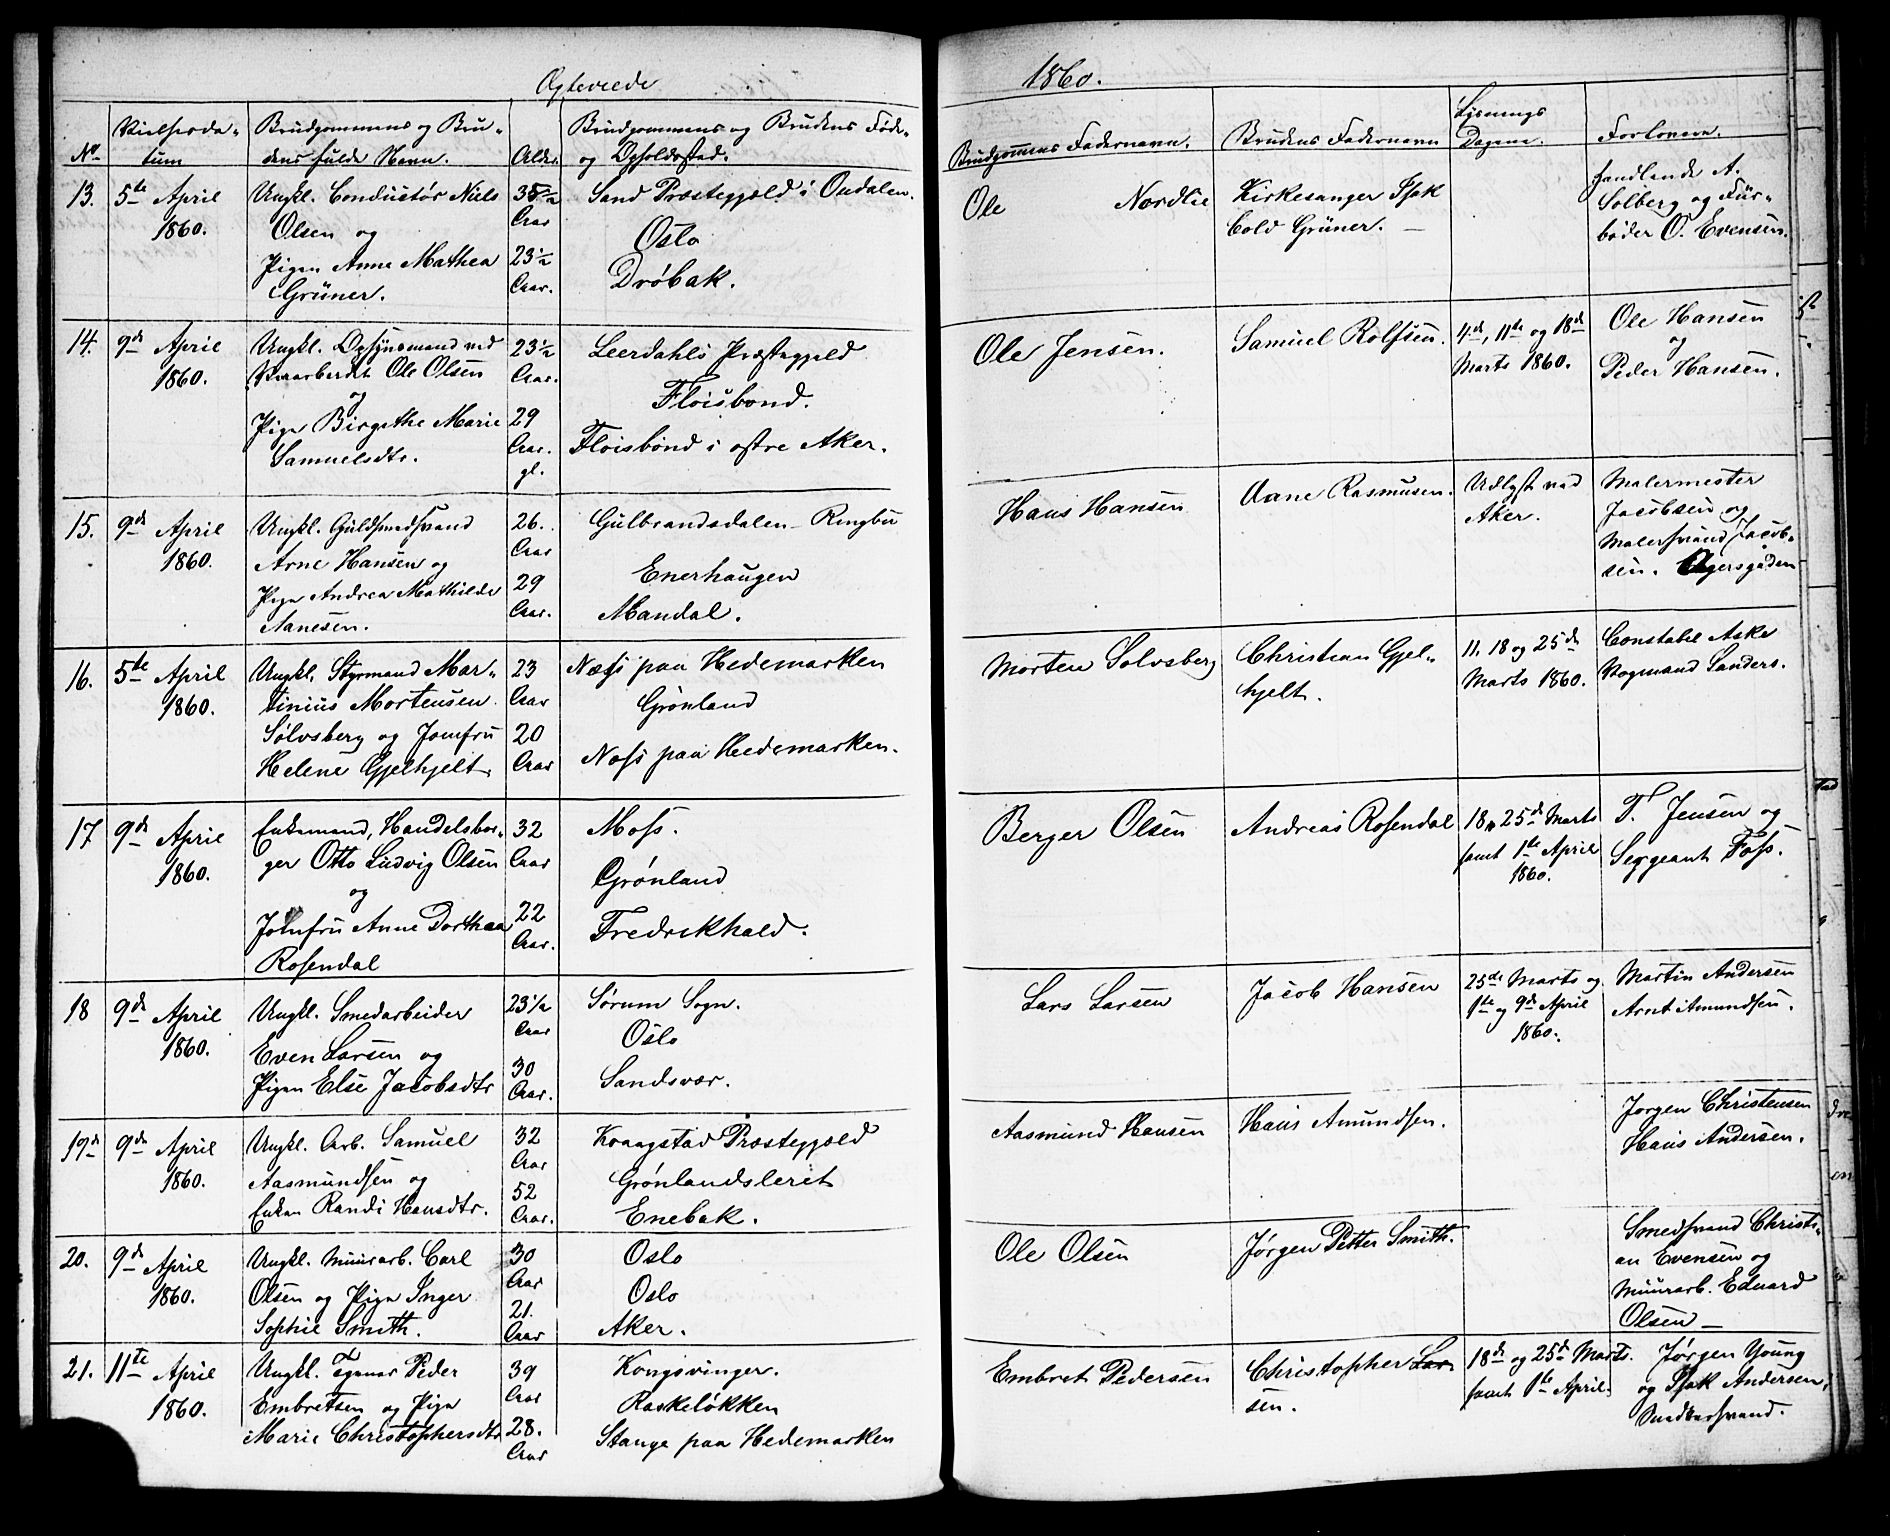 Egteviede
1860.
No.
Vielsesda-
tum
Brudgommens og Bru-
dens fulde Navn.
Alder.
Brudgommens og Brudens Føde-
og Opholdssted.
Brudgommens Fadernavn.
Brudens Fadernavn
Lysnings
Dagene.
Forlovere.
13.
5te April
1860.
Ungkl. Conductør Niels
Olsen og
Pigen Anne Mathea
Grüner.
35 1/2
Aar
23 1/2
Aar.
Sand Præstegjæld i Oudalen.
Oslo
Drøbak.
Ole Nordlie
Kirkesanger Isak
Cold Grüner. —
Handlende A.
Solberg og Für-
bøder O. Evensen.
14.
9de April
1860.
Ungkl. Opsynsmand ved
Ole Olsen
og
Pige Birgithe Marie
Samuelsdtr.
23 1/2
Aar.
29
Aar.
gl.
Leerdahls Præstegjeld
Floisbond.
Floisbond i østre Aker.
Ole Jensen.
Samuel Rolfsen.
4de, 11te og 18de
Marts 1860.
Ole Hansen
og
Peder Hansen.
15.
9de April
1860.
Ungkl. Guldsmedsvend
Arne Hansen og
Pige Andrea Mathilde
Aanesen.
26.
Aar
29
Aar.
Gulbrandsdalen - Ringbu
Enerhaugen
Mandal.
Hans Hansen
Aane Rasmusen.
Udlyst ved
Aker.
Malermester
Jacobsen og
Malersvend Jacob-
sen. Agersgaden
16.
5te April
1860.
Ungkl. Styrmand Mar-
tinius Mortensen
Sølvsberg og Jomfru
Helene Gjelhjelt.
23
Aar
20
Aar
Næss paa Hedemarken
Grønland
Næss paa Hedemarken.
Morten Solvsberg
Christian Gjel-
hjelt.
11, 18 og 25de
Marts 1860.
Constabel Aske
Vogmand Sanders.
17
9de April
1860.
Enkemand, Handelsbor-
ger Otto Ludvig Olsen
og
Jomfru Anne Dorthea
Rosendal
32
Aar
22
Aar.
Moss.
Grønland
Fredrikhald.
Berger Olsen
Andreas Rosendal
18, 25de Marts
samt 1te April
1860.
T. Jensen og
Sergeant Foss.
18
9de April
1860.
Ungkl. Smedarbeider
Even Larsen og
Pigen Else Jacobsdtr
23 1/2
Aar
30
Aar.
Sørum Sogn.
Oslo
Sandsvær.
Lars Larsen
Jacob Hansen
25de Marts og
1te og 9de April
1860.
Martin Andersen
Arnt Amundsen.
19de
9de April
1860.
Ungkl. Arb. Samuel
Aasmundsen og
Enken Randi Hansdtr.
32
Aar
52
Aar.
Kraagstad Præstegjæld
Grønlandsleret
Enebak.
Aasmund Hansen
Hans Amundsen.
Jørgen Christensen
Hans Andersen.
20.
9de April
1860.
Ungkl. Muurarb. Carl
Olsen og Pige Inger
Sophie Smith.
30
Aar
21.
Aar
Oslo
Oslo
Aker.
Ole Olsen
Jørgen Petter Smith.
Smedsvend Christi-
an Evensen og
Muurarb. Edvard
Olsen —
21.
11te April
1860.
Ungkl. Peder
Embretsen og Pige
Marie Christophersdtr
39
Aar
28.
Aar
Kongsvinger.
Raskeløkken
Stange paa Hedemarken
Embret Pedersen
Christopher Lar-
sen.
18de og 25de Marts.
samt 1te April.
Jørgen Young
og Isak Andersen,
Snedkersvend.